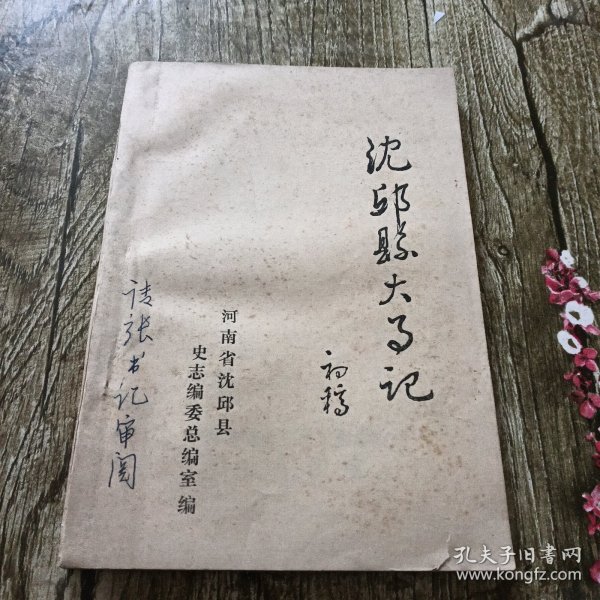 沈邱縣大事记
初稿
河南省沈邱县
史志编委总编室编
请张书记审阅
孔夫子旧书网
www.kongfz.com